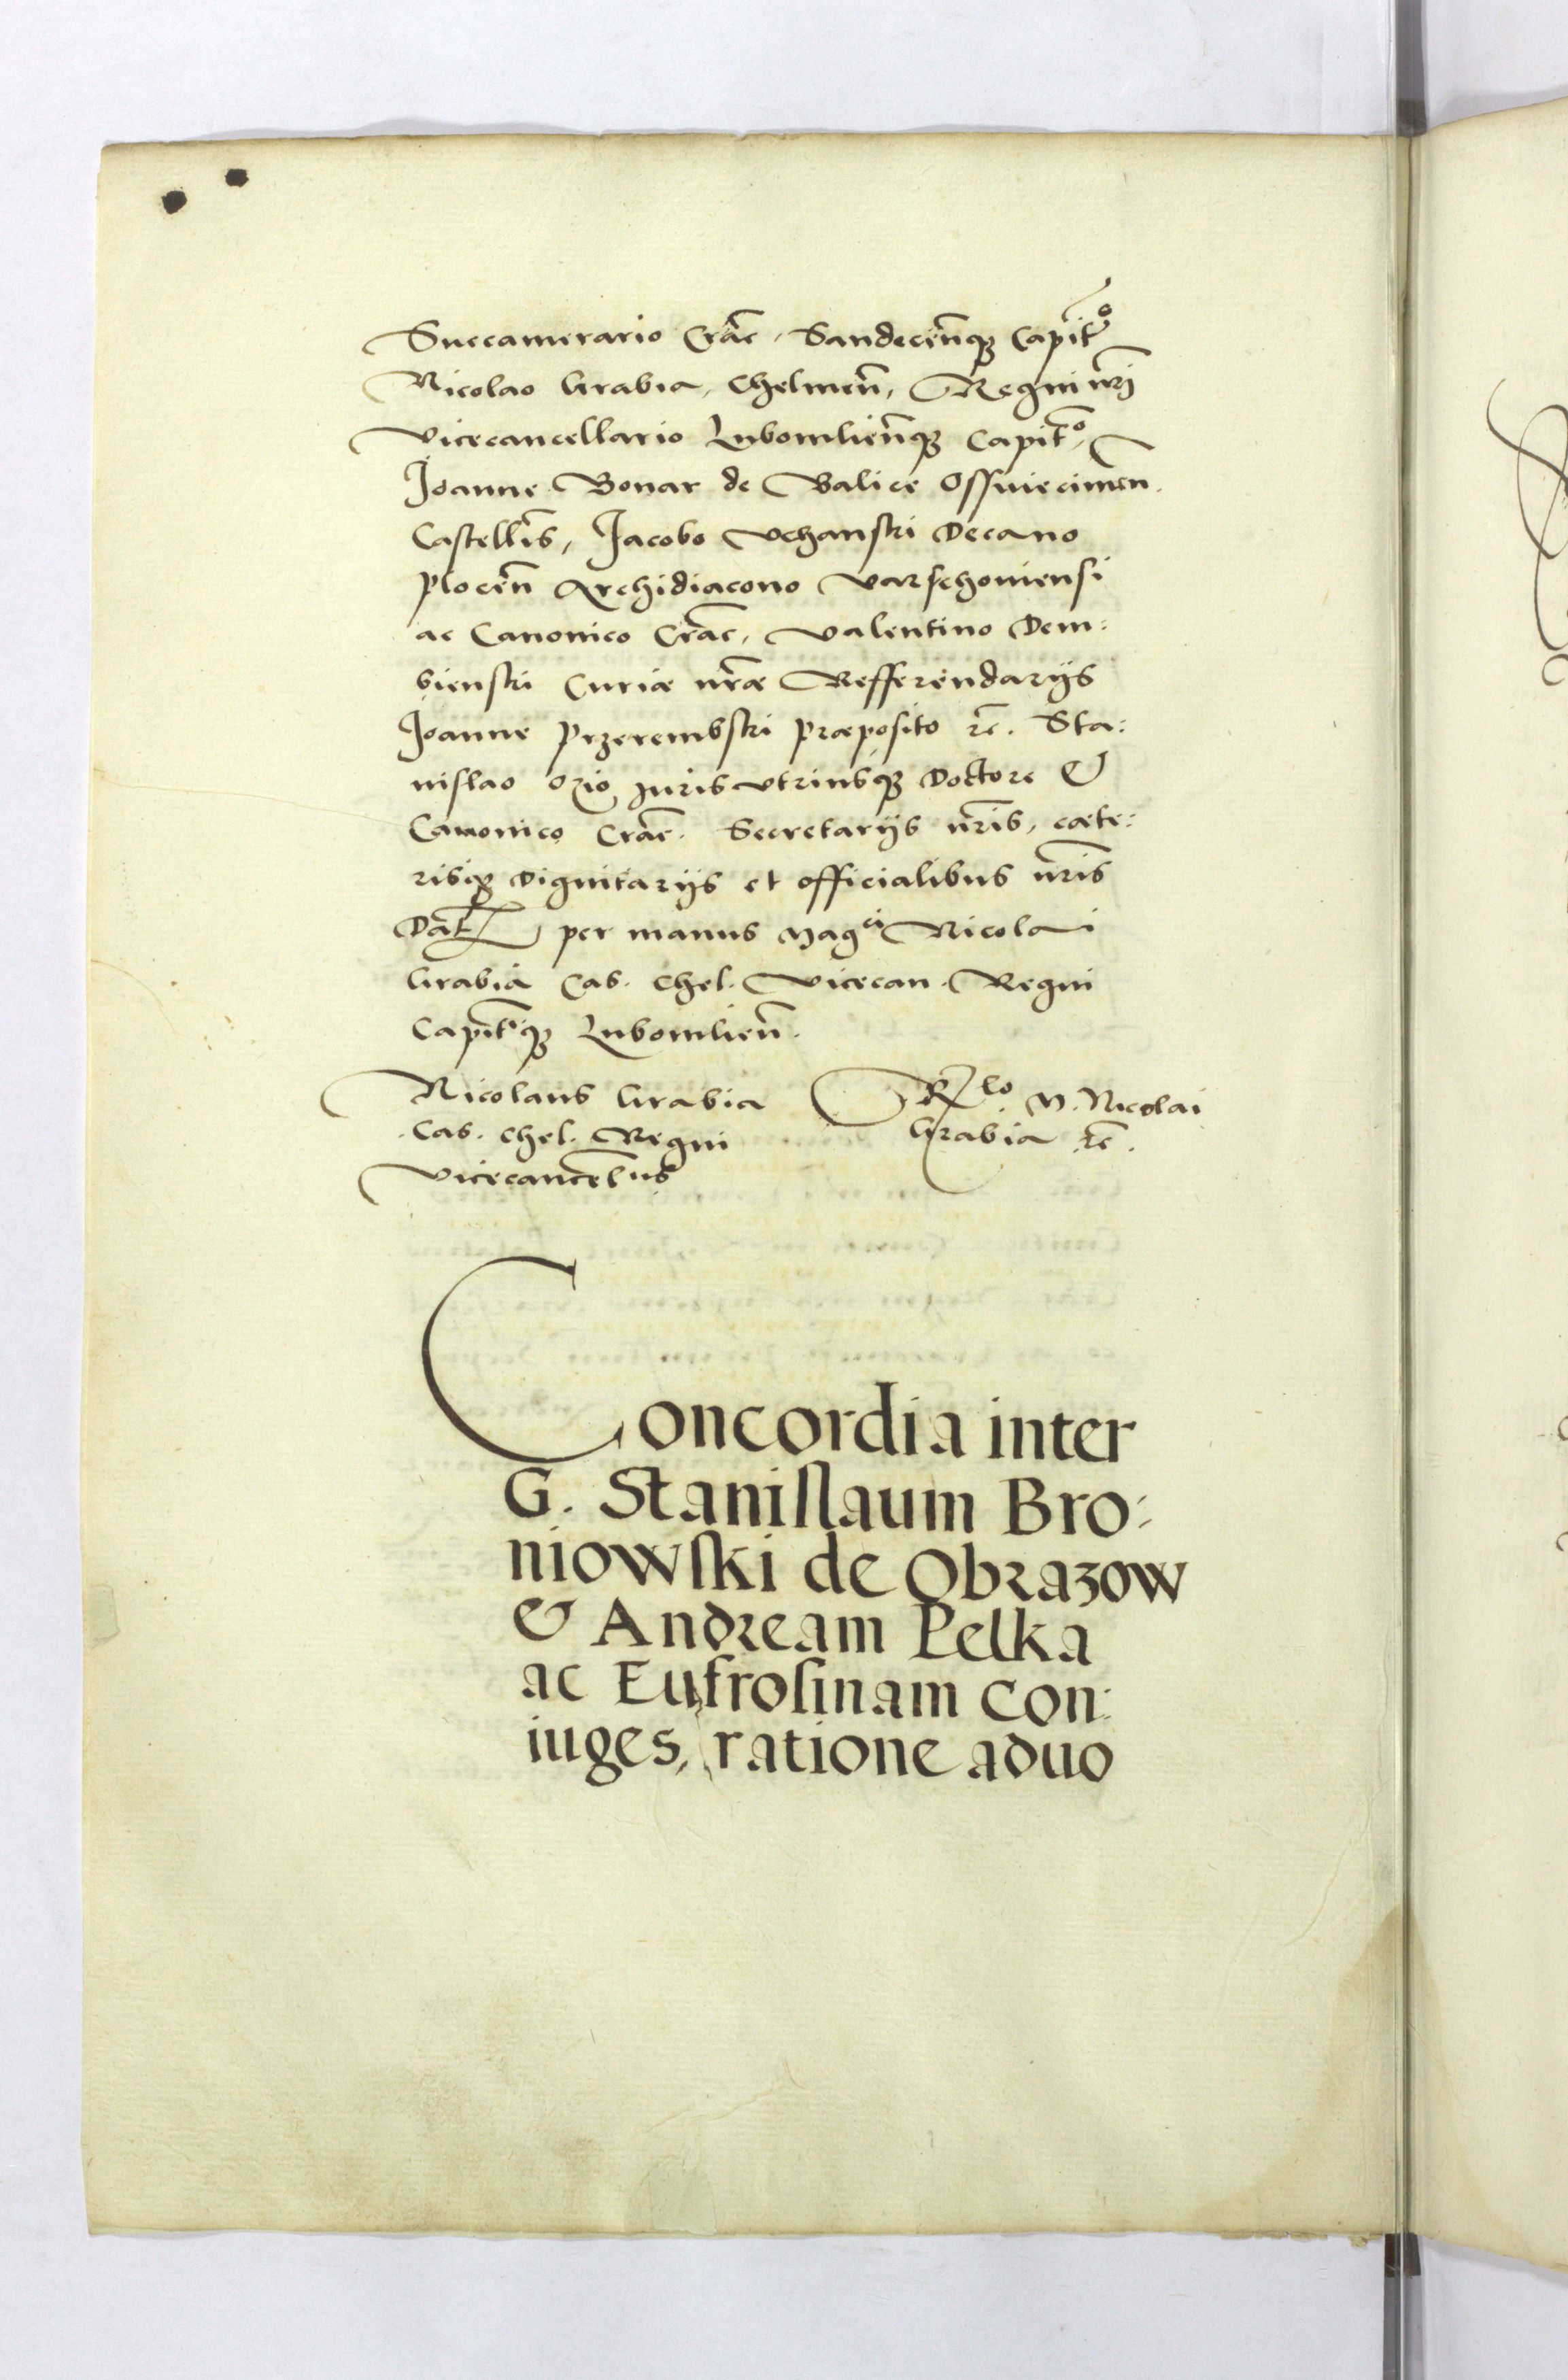 Succamerario Crac̄, Sandecen̄q̨ꝫ Capit̄o
Nicolao Grabia, Chelmen̄, Regni nr̄i
Vicecancellario Lubomlien̄qꝫ Capit̄o,
Joanne Bonar de Balice Osswiecimen.
Castellīs, Jacobo Vchanski Decano
plocen̄ Archidiacono Varschouiensi
ac Canonico Crac̄, Valentino Dem:
bienski Curiæ nr̄æ Refferendarijs
Joanne Przerembski præposito ꝛc̄. Sta:
nislao Ozio Juris vtriusqꝫ Doctore &
Canonico Crac̄. Secretarijs nr̄is, cæte:
risqꝫ Dignitarijs et officialibus nr̄is
Dat̄ per manus Mag^ci Nicolai
Grabia Cas. Chel. Vicecan. Regni
Capit̄iqꝫ Lubomlien̄.
Nicolaus Grabia
Cas. Chel. Regni
Vicecancel̄lus
R̄^lo. M. Nicolai
Grabia ꝛc̄.
Concordia inter
G. Stanislaum Bro:
niowski de Obrazow
& Andream Pelka
ac Eufrosinam Con:
iuges, ratione aduo